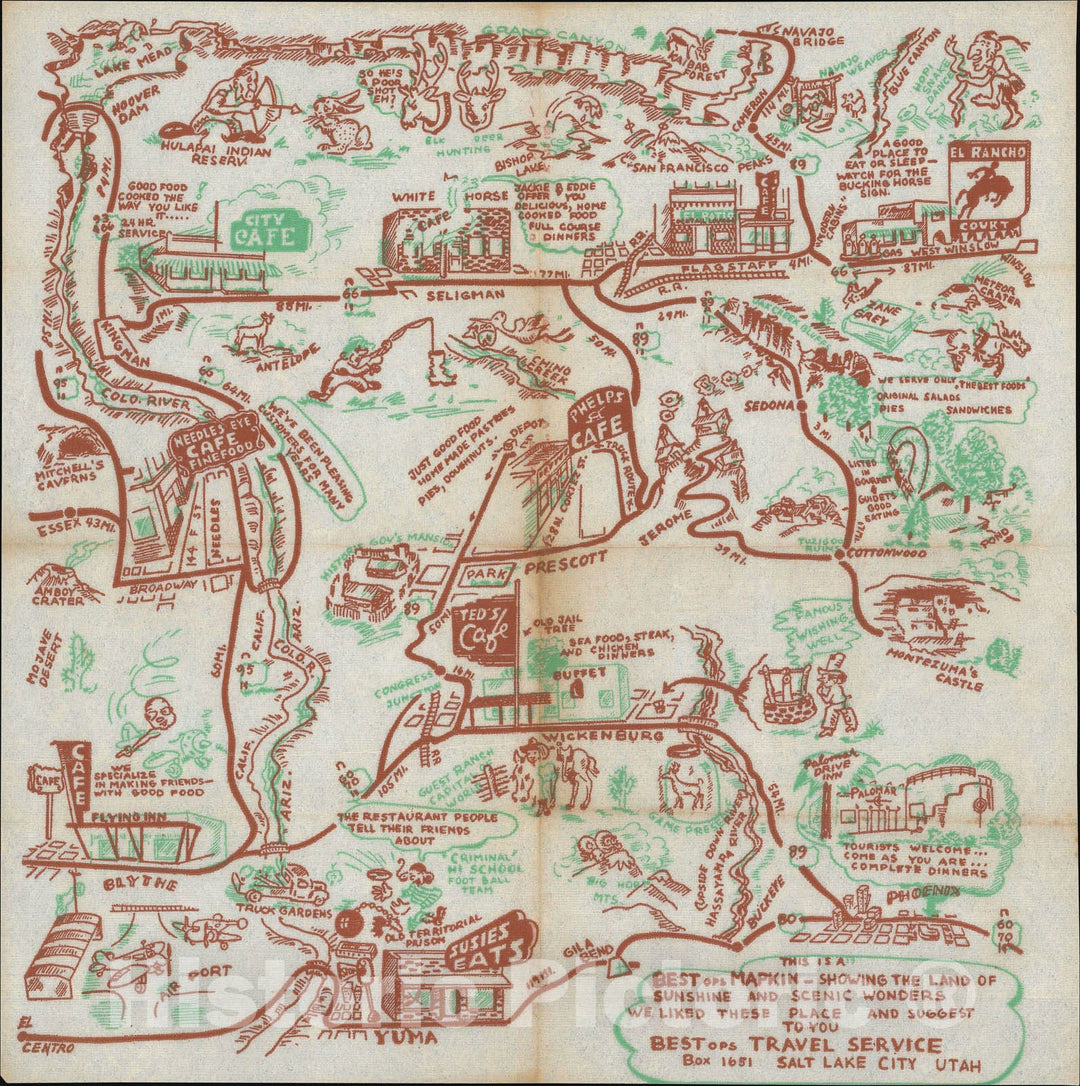 LAKE MEAD
HOOVER
DAM
HULAPAI INDIAN
RESERV.
SO HE'S
A POOR
SHOT
EH!
ELK DEER
HUNTING
GRAND CANYON
KAIBAB
FOREST
NAVAJO
BRIDGE
NAVAJO
WEAVER
BLUE CANYON
HOPI
SNAKE
DANCE
CAMERON
INN
BISHOP
LAKE
SAN FRANCISCO PEAKS
89
A GOOD
PLACE TO
EAT OR SLEEP—
WATCH FOR THE
BUCKING HORSE
SIGN.
EL RANCHO
COURT
GAS WEST WINSLOW
WINSLOW
84 MI.
GOOD FOOD
COOKED THE
WAY YOU LIKE
IT.....
24 HR.
SERVICE
CITY
CAFE
WHITE HORSE
CAFE
JACKIE & EDDIE
OFFER YOU
DELICIOUS, HOME
COOKED FOOD
FULL COURSE
DINNERS
EL PATIO
CAFE
R.R.
FLAGSTAFF
R.R.
4 MI.
66
87 MI.
METEOR
CRATER
ZANE
GREY
77 MI.
SELIGMAN
66
88 MI.
1 MI.
KINGMAN
ANTELOPE
CHINO
CREEK
50 MI.
89
29 MI.
OAK CREEK
SEDONA
3 MI.
WE SERVE ONLY THE BEST FOODS
ORIGINAL SALADS
PIES SANDWICHES
LISTED
IN
GOURMET
GUIDE TO
GOOD
EATING
POND
COLO. RIVER
95
64 MI.
MITCHELL'S
CAVERNS
ESSEX 43 MI.
AMBOY
CRATER
NEEDLES EYE
CAFE
FINE FOOD
WE'VE BEEN PLEASING
CUSTOMERS FOR
MANY
YEARS
144 F ST
NEEDLES
BROADWAY
JUST GOOD FOOD,
HOME MADE PASTRIES
PIES, DOUGHNUTS.
DEPOT
PHELPS
CAFE
TRUCK ROUTE
N. CORTEZ ST.
JEROME
39 MI.
TUZIGOOT
RUINS
COTTONWOOD
MONTEZUMA'S
CASTLE
HISTORIC GOV'S MANSION
PARK
PRESCOTT
89
50 MI.
TED'S
Cafe
OLD JAIL
TREE
SEA FOODS, STEAK,
AND CHICKEN
DINNERS
BUFFET
FAMOUS
WISHING
WELL
MOJAVE
DESERT
60 MI.
CALIF.
ARIZ.
COLO. R.
95
CONGRESS
JUNCTION
16 MI.
RR
WICKENBURG
105 MI.
GUEST RANCH
CAPITAL
WORLD
GAME PRES.
54 MI.
CALIF.
ARIZ.
CAFE
CAFE
WE
SPECIALIZE
IN MAKING FRIENDS—
WITH GOOD FOOD
FLYING INN
BLYTHE
THE RESTAURANT PEOPLE
TELL THEIR FRIENDS
ABOUT
CRIMINAL
HI SCHOOL
FOOT BALL
TEAM
BIG HORN
MTS.
(UPSIDE DOWN RIVER)
HASSAYAMPA RIVER
BUCKEYE
Palomar
DRIVE
INN
PALOMAR
TOURISTS WELCOME...
COME AS YOU ARE...
COMPLETE DINNERS
89
80
PHOENIX
60
70
TRUCK GARDENS
OLD TERRITORIAL
PRISON
SUSIES
EATS
AIR PORT
EL
CENTRO
YUMA
GILA
BEND
THIS IS A
BEST OPS MAPKIN — SHOWING THE LAND OF
SUNSHINE AND SCENIC WONDERS
WE LIKED THESE PLACE AND SUGGEST
TO YOU
BEST OPS TRAVEL SERVICE
BOX 1651 SALT LAKE CITY UTAH